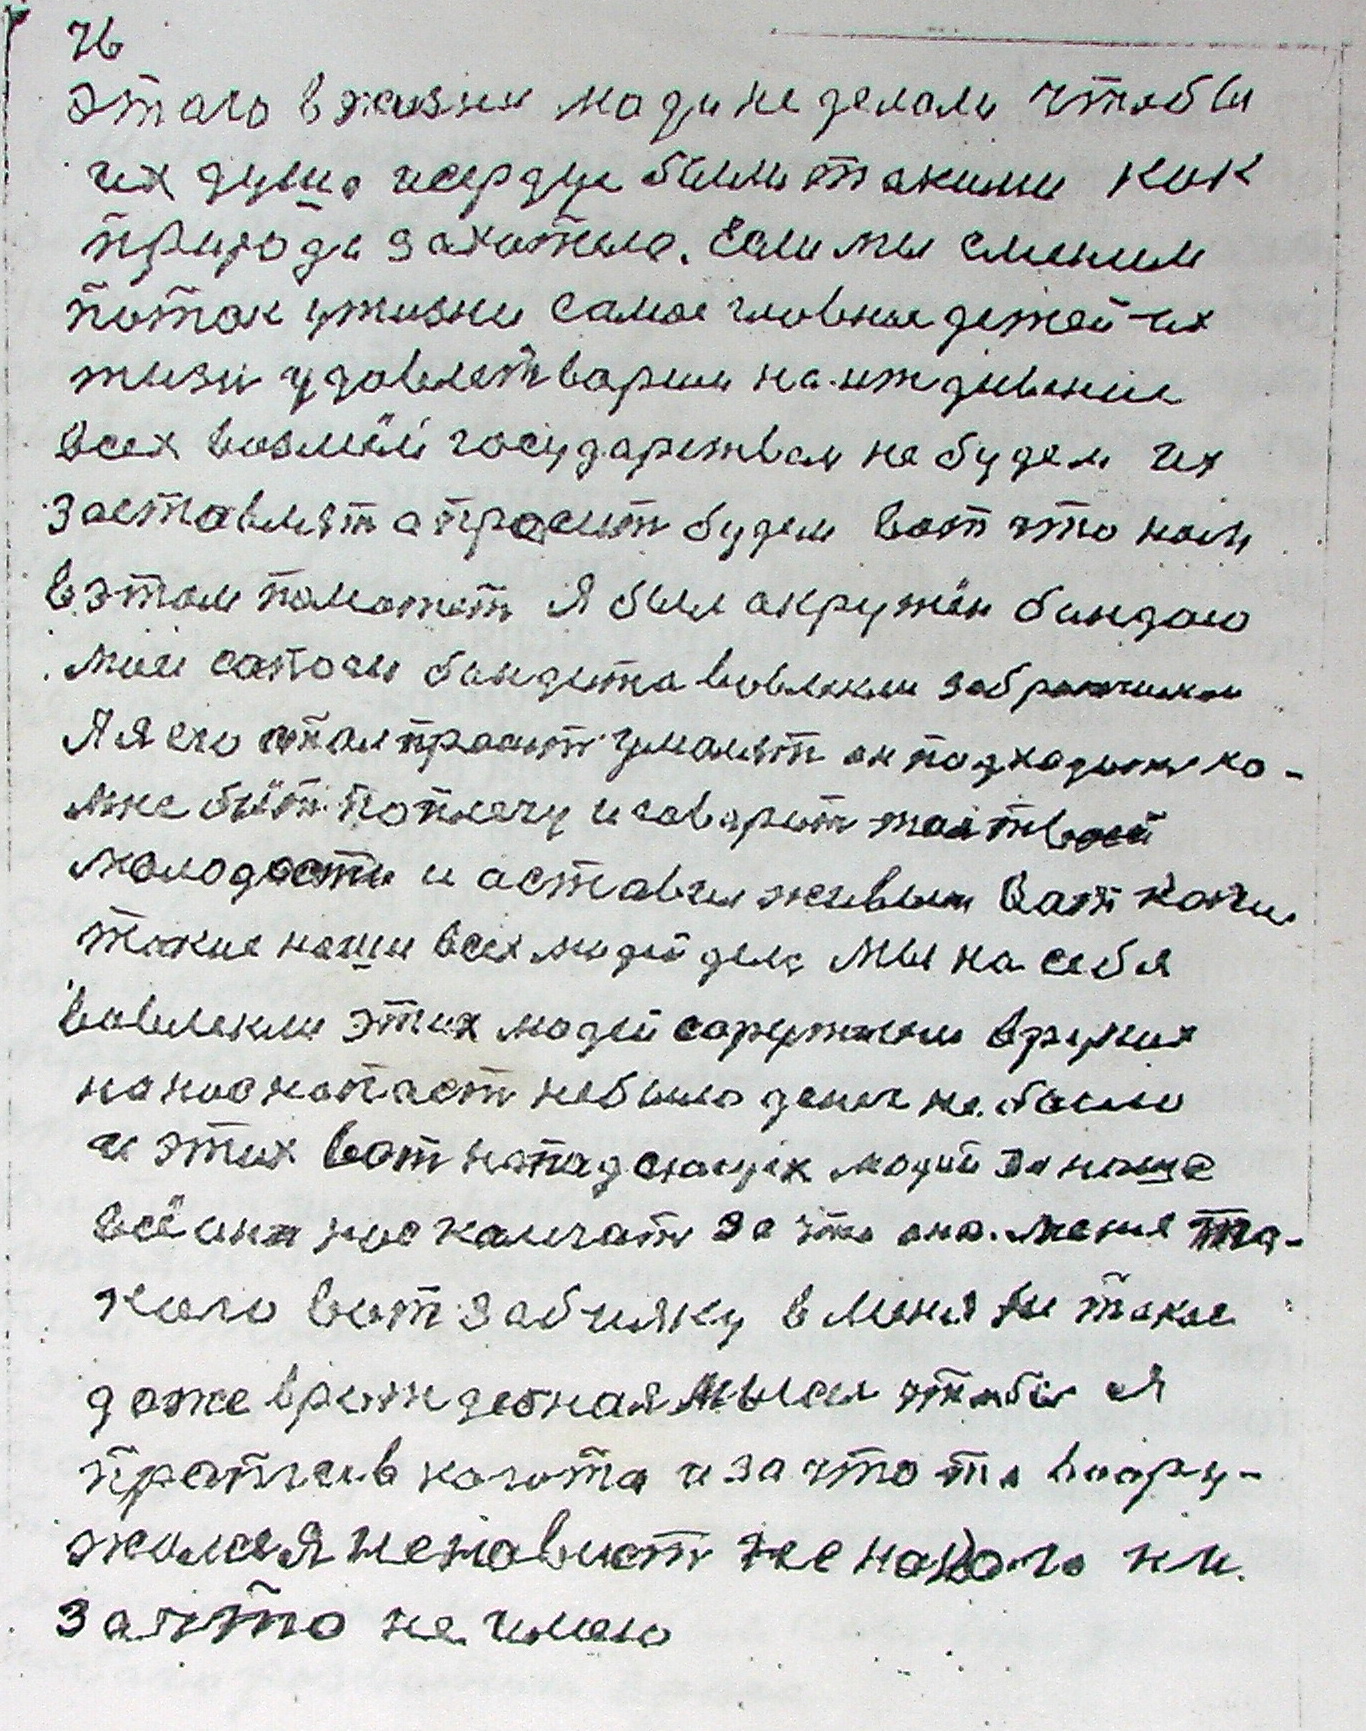 76
этаго в жизни люди не делали чтобы
их душа и сердце были такими как
природа захотела. Если мы сменим
поток у жизни самое главное детей их
жизи удавлетварим на иждивение
всех возмём государствам не будем их
заставлят а просит будем вот что нам
в этом паможет Я был акружён бандаю
маи сапоги бандита вовлекли
Я я его стал просит умалят он подходит ко
мне бит поплечу и говарит твоей
молодости и аставил живым Вот
такие наши всех людей дела мы на себя
вовлекли этих людей саружием в руках
на нас напаст небыло денег не было
и этих вот нападающих людей за наше
всё они нас калечат за что она. меня та-
кого вот забияку в меня не такое
даже мысл чтобы я
против когото и за что то воору-
жался я ненавист не на кого ни
за что не имею